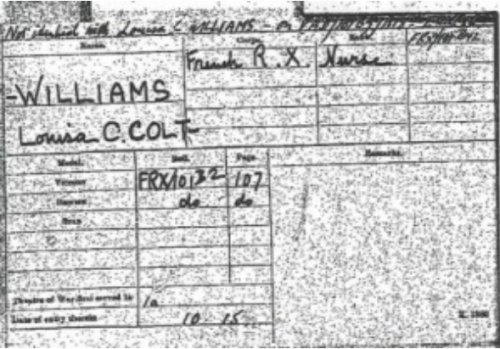 Not identical with Louisa C WILLIAMS - on
Name. Corps. Rank.
French R.X Nurse
-WILLIAMS
Louisa C. COLT-
Medal. Roll. Page. Remarks.
Victory FRX/101B2 107
British do do
Star
Theatre of War first served in 1a
Date of entry therein 10 15.
K. 1380